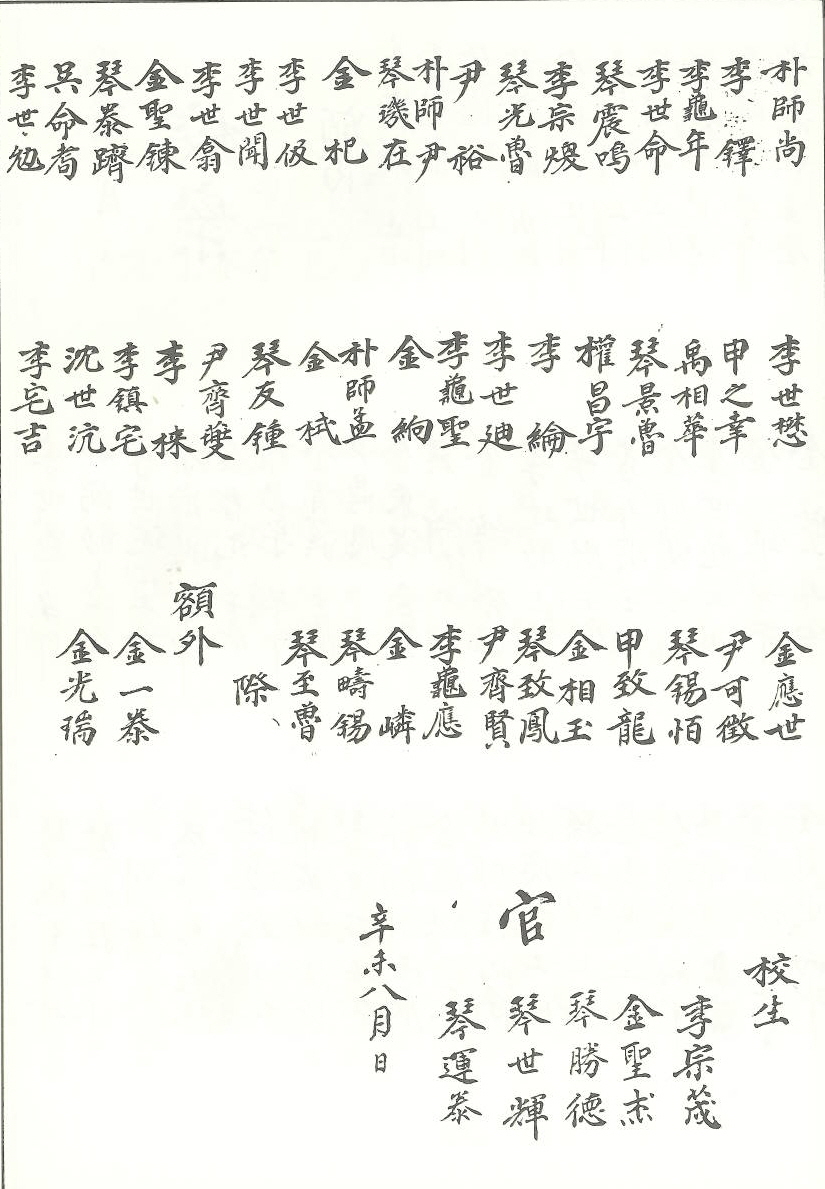 朴師尚
李鐸
李龜年
李世命
琴震鳴
李宗煥
琴光魯
尹裕
朴師尹
琴璣在
金杞
李世伋
李世聞
李世翕
金聖鍊
琴泰躋
吳命耉
李世勉
李世懋
申之幸
禹相華
琴景魯
權昌宇
李綸
李世迪
李龜聖
金絢
朴師孟
金栻
琴友鍾
尹齊雙
李棶
李鎮宅
沈世沆
李宅吉
金應世
尹可徵
琴錫怕
申致龍
金相玉
琴致鳳
尹齊賢
李龜應
金嶙
琴疇錫
琴至魯
際
額外
金一泰
金光瑞
校生
李宗茂
金聖杰
琴勝德
琴世輝
琴運泰
官
辛未八月日